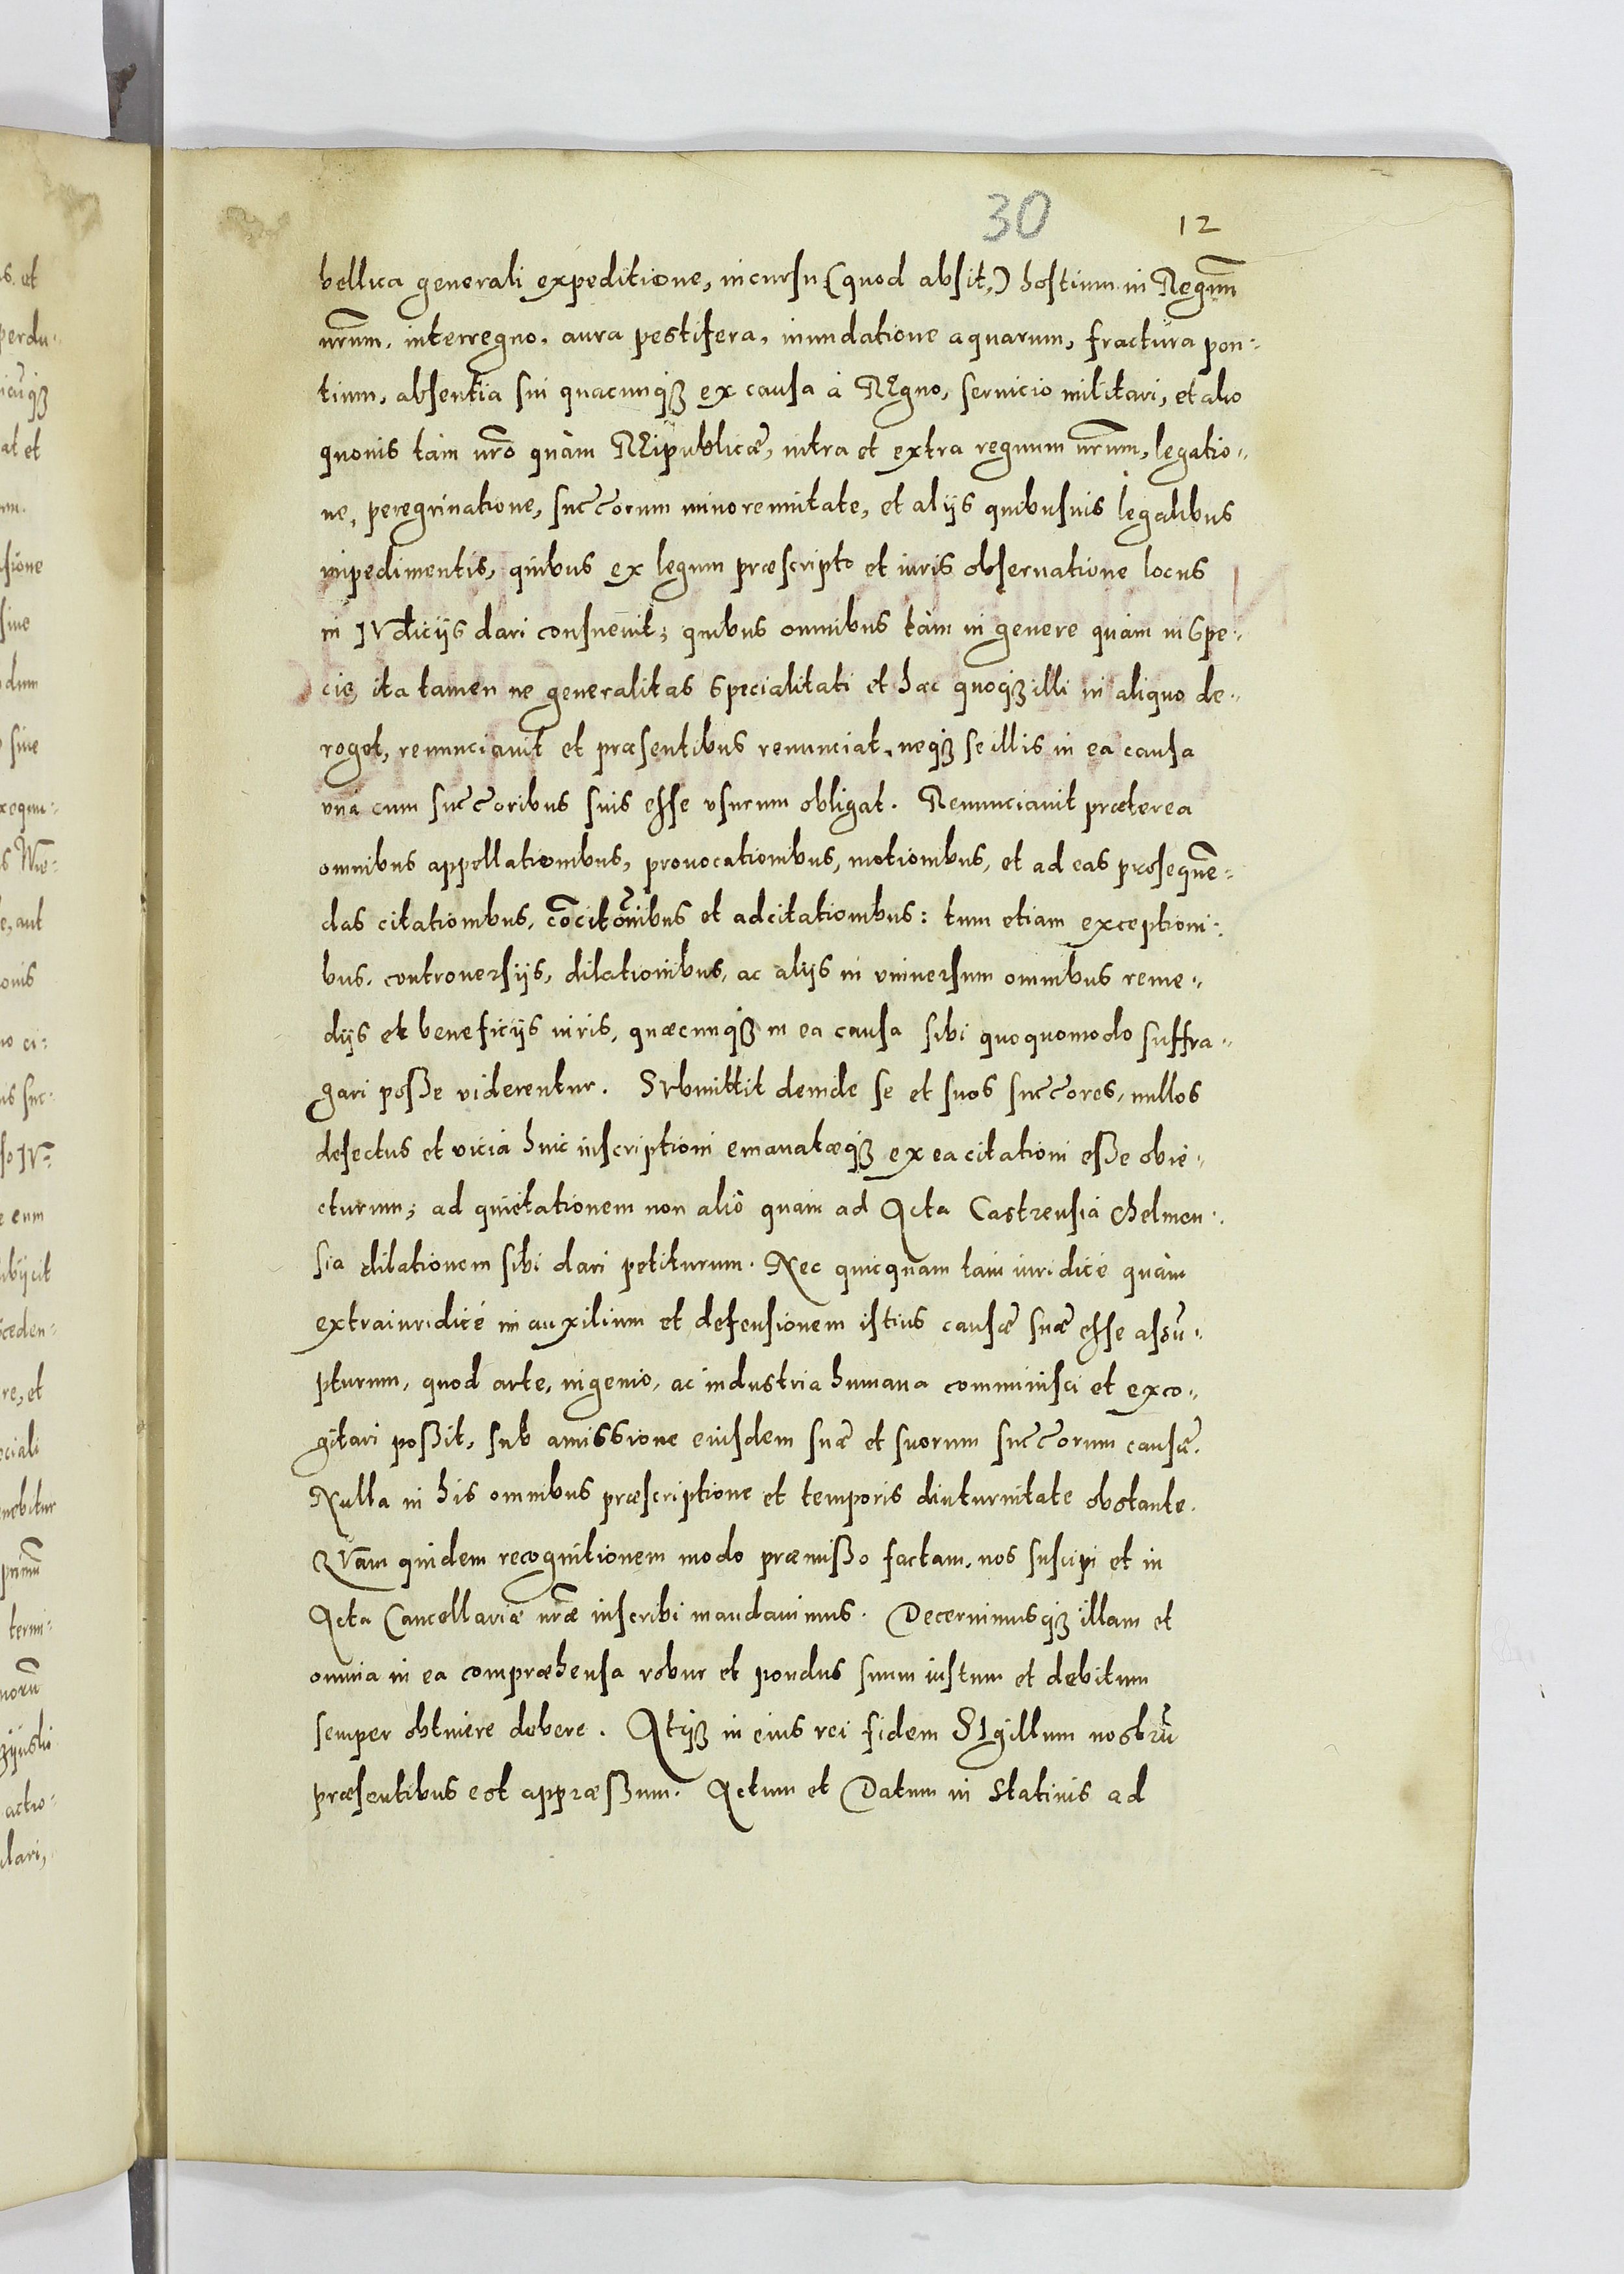 30 12
bellica generali expeditione, incursu (quod absit,) hostium in Regnũ
nr̃um, interregno, aura pestifera, inundatione aquarum, fractura pon-
tium, absentia sui quacunqꝫ ex causa à REgno, seruicio militari, et alio
quouis tàm nr̃o quàm REipublicæ, intra et extra regnum nr̃um, legatio-
ne, peregrinatione, succ̃orum minorennitate, et alijs quibusuis legalibus
impedimentis, quibus ex legum præscripto et iuris obseruatione locus
in IVdicijs dari consueuit; quibus omnibus tàm in genere quàm in spe-
cie, ita tamen ne generalitas specialitati et hæc quoqꝫ illi in aliquo de-
roget, renunciauit et præsentibus renunciat, neqꝫ se illis in ea causa
vnà cum succ̃oribus suis esse vsurum obligat. Renunciauit præterea
omnibus appellationibus, prouocationibus, motionibus, et ad eas proseqũe-
das citationibus, cõcitõnibus et adcitationibus: tum etiam exceptioni-
bus, controuersijs, dilationibus, ac alijs in vniuersum omnibus reme-
dijs et beneficijs iuris, quæcunqꝫ in ea causa sibi quoquomodo suffra-
gari posse viderentur. SVbmittit deinde se et suos succ̃ores, nullos
defectus et vicia huic inscriptioni emanatæqꝫ ex ea citationi esse obie-
cturum; ad quietationem non aliò quàm ad Acta Castrensia Chelmen-
sia dilationem sibi dari petiturum. Nec quicquam tàm iuridicè quàm
extraiuridicè in auxilium et defensionem istius causæ suæ esse assũ-
pturum, quod arte, ingenio, ac industria humana comminisci et exco-
gitari possit, sub amissione eiusdem suæ et suorum succ̃orum causæ.
Nulla in his omnibus præscriptione et temporis diuturnitate obstante.
QVam quidem recognitionem modo præmisso factam, nos suscipi et in
Acta Cancellariæ nr̃æ inscribi mandauimus. Decernimusqꝫ illam et
omnia in ea compræhensa robur et pondus suum iustum et debitum
semper obtinere debere. Atqꝫ in eius rei fidem SIgillum nostrũ
præsentibus est appræssum. Actum et Datum in Statiuis ad